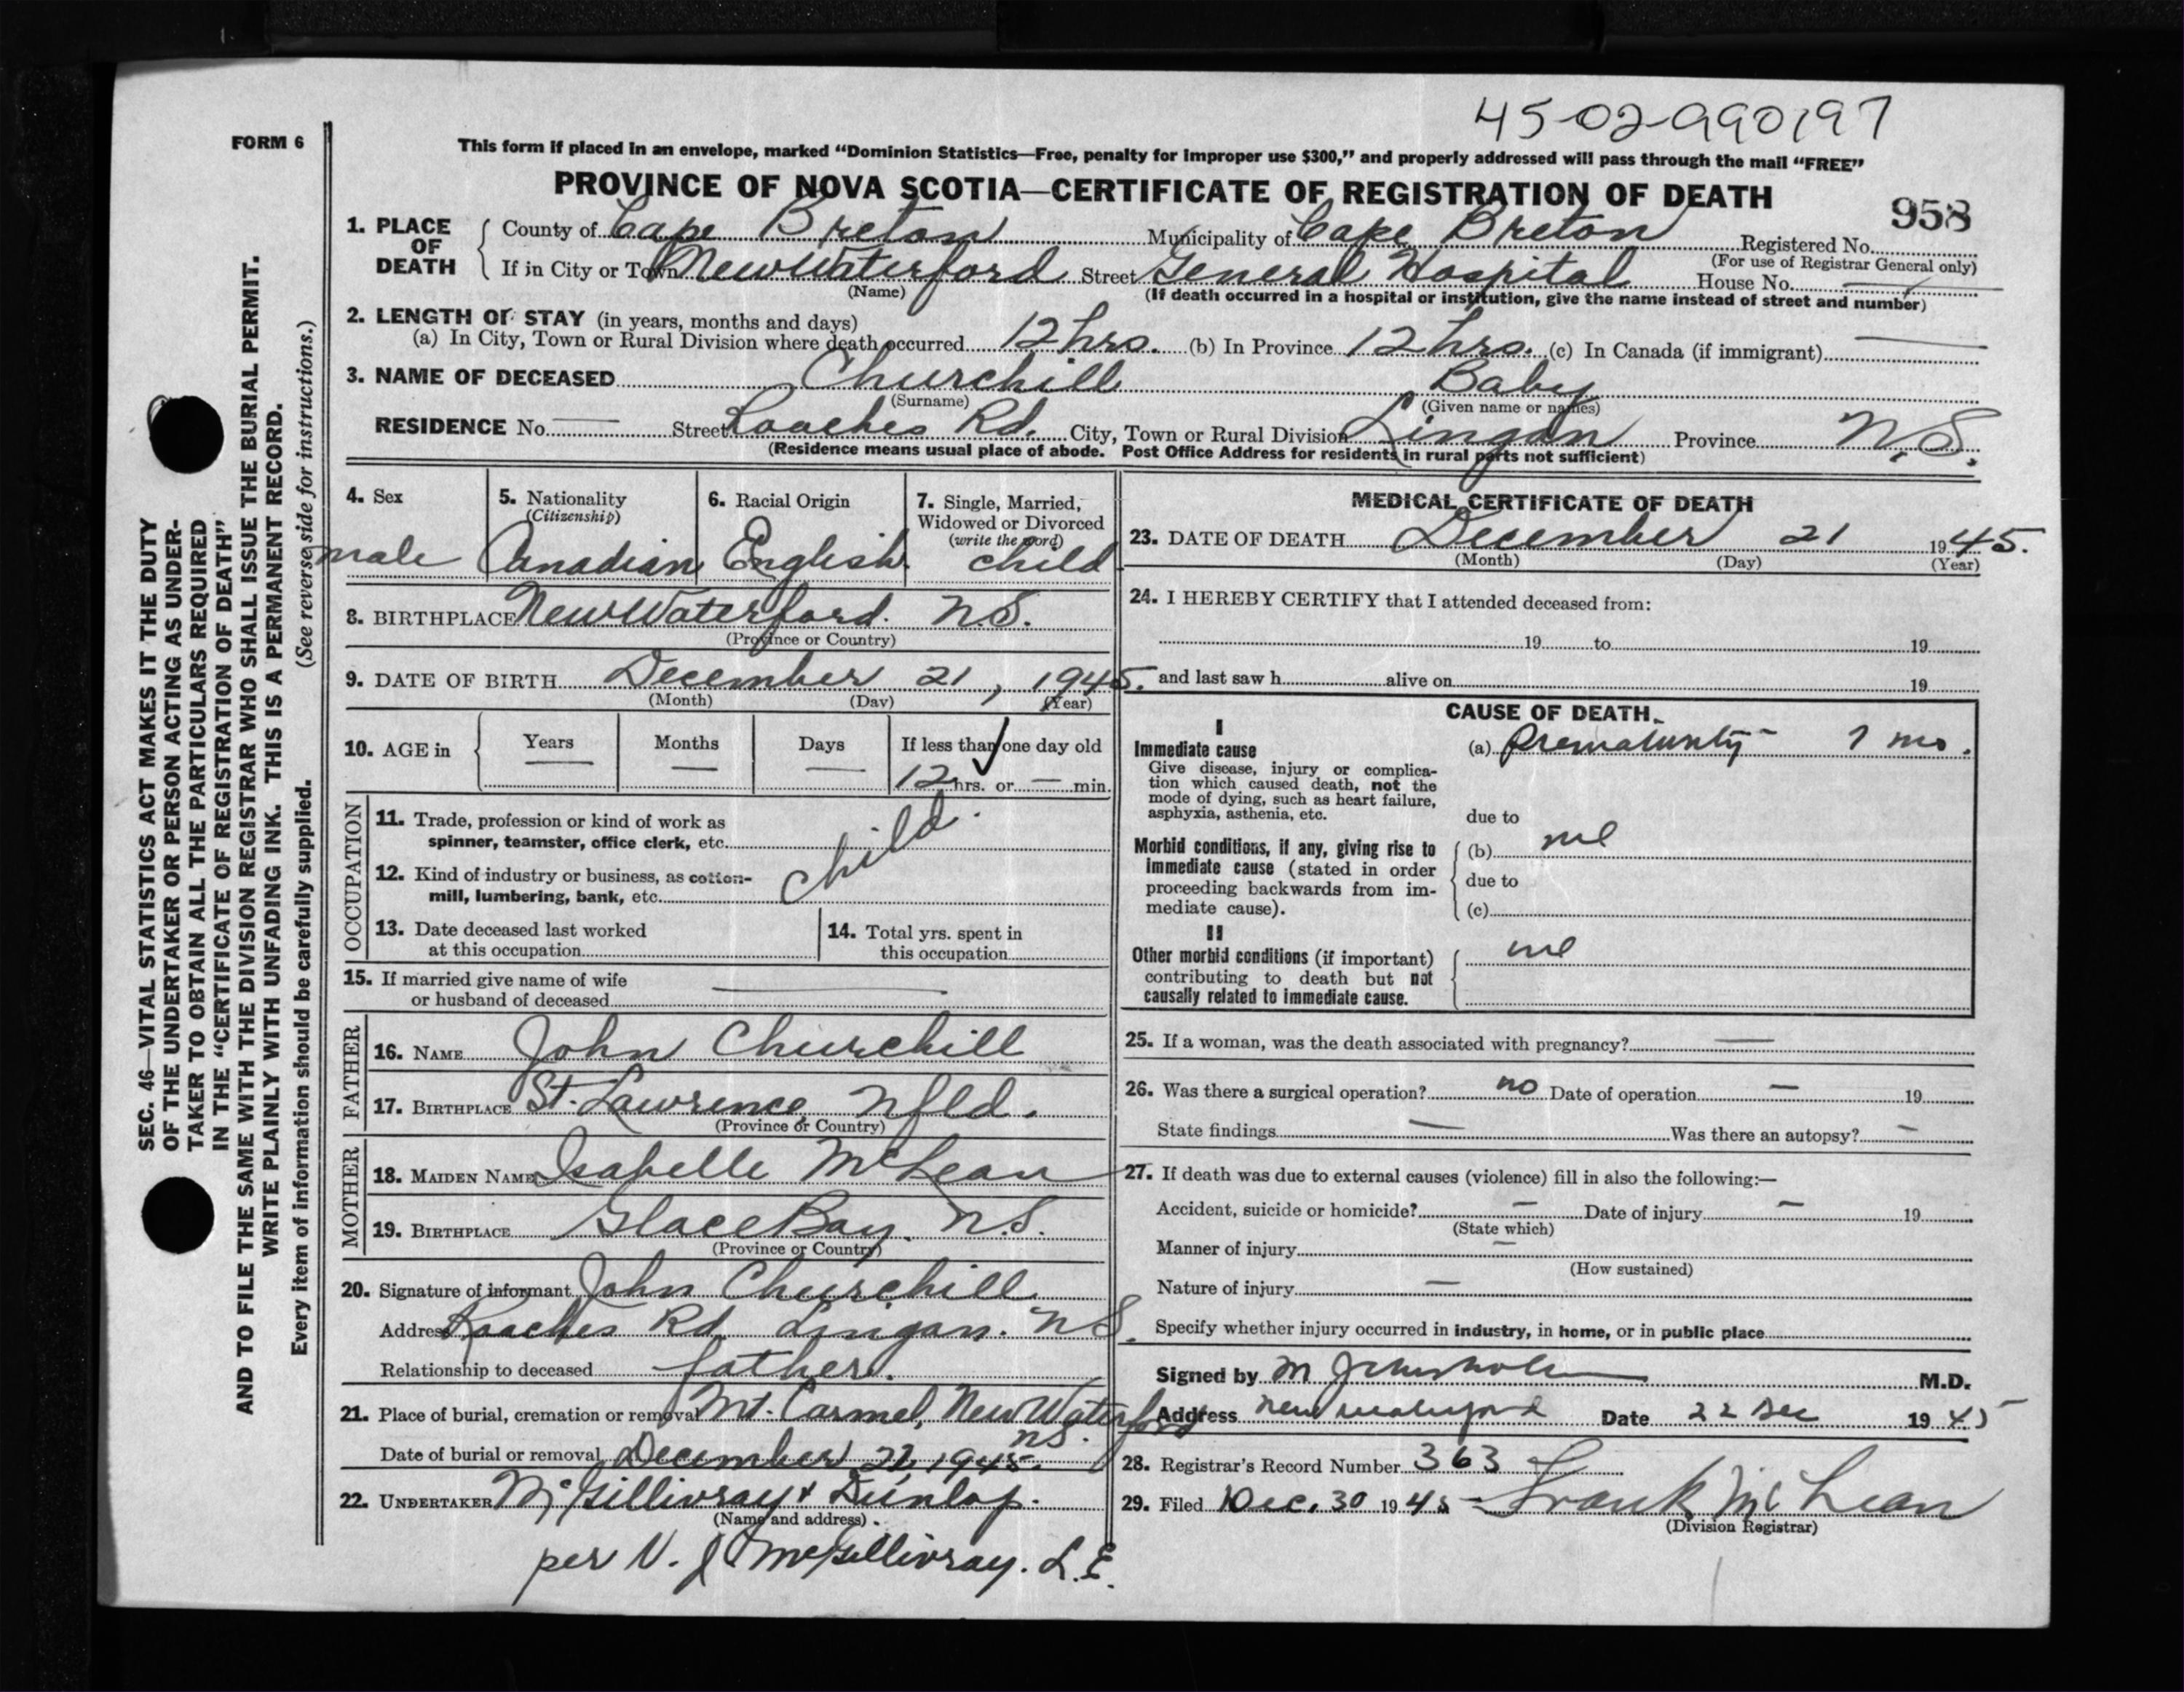 45-02-990197
FORM 6
This form if placed in an envelope, marked “Dominion Statistics—Free, penalty for improper use $300,” and properly addressed will pass through the mail “FREE”
PROVINCE OF NOVA SCOTIA—CERTIFICATE OF REGISTRATION OF DEATH
958
1. PLACE OF DEATH
County of Cape Breton Municipality of Cape Breton Registered No.
(For use of Registrar General only)
If in City or Town New Waterford Street General Hospital House No. —
(Name) (If death occurred in a hospital or institution, give the name instead of street and number)
2. LENGTH OF STAY (in years, months and days)
(a) In City, Town or Rural Division where death occurred 12 hrs. (b) In Province 12 hrs. (c) In Canada (if immigrant) —
3. NAME OF DECEASED Churchill Baby
(Surname) (Given name or names)
RESIDENCE No. — Street Roaches Rd. City, Town or Rural Division Lingan Province N.S.
(Residence means usual place of abode. Post Office Address for residents in rural parts not sufficient)
4. Sex
male
5. Nationality
(Citizenship)
Canadian
6. Racial Origin
English
7. Single, Married,
Widowed or Divorced
(write the word)
child
8. BIRTHPLACE New Waterford. N.S.
(Province or Country)
9. DATE OF BIRTH December 21, 1945.
(Month) (Day) (Year)
10. AGE in
Years Months Days If less than one day old
— — — 12 hrs. or — min.
OCCUPATION
11. Trade, profession or kind of work as
spinner, teamster, office clerk, etc.
child.
12. Kind of industry or business, as cotton-
mill, lumbering, bank, etc.
13. Date deceased last worked
at this occupation
14. Total yrs. spent in
this occupation
15. If married give name of wife
or husband of deceased —
FATHER
16. NAME John Churchill
17. BIRTHPLACE St. Lawrence, Nfld.
(Province or Country)
MOTHER
18. MAIDEN NAME Isabelle McLean
19. BIRTHPLACE Glace Bay. N.S.
(Province or Country)
20. Signature of informant John Churchill
Address Roaches Rd. Lingan. N.S.
Relationship to deceased father.
21. Place of burial, cremation or removal Mt. Carmel, New Waterford
N.S.
Date of burial or removal December 1945.
22. UNDERTAKER McGillivray & Dunlop.
(Name and address)
per N. J. McGillivray. L.E.
MEDICAL CERTIFICATE OF DEATH
23. DATE OF DEATH December 21 1945.
(Month) (Day) (Year)
24. I HEREBY CERTIFY that I attended deceased from:
19 to 19
and last saw h alive on 19
CAUSE OF DEATH
I
Immediate cause
Give disease, injury or complica-
tion which caused death, not the
mode of dying, such as heart failure,
asphyxia, asthenia, etc.
(a) Prematurity mo.
due to
Morbid conditions, if any, giving rise to
immediate cause (stated in order
proceeding backwards from im-
mediate cause).
(b)
due to
(c)
II
Other morbid conditions (if important)
contributing to death but not
causally related to immediate cause.
25. If a woman, was the death associated with pregnancy? —
26. Was there a surgical operation? no Date of operation — 19
State findings — Was there an autopsy? —
27. If death was due to external causes (violence) fill in also the following:—
Accident, suicide or homicide? — Date of injury — 19
(State which)
Manner of injury —
(How sustained)
Nature of injury —
Specify whether injury occurred in industry, in home, or in public place
Signed by M M.D.
Address New Waterford Date 22 Dec 1945
28. Registrar's Record Number 363
29. Filed Dec. 30 1945 Frank McLean
(Division Registrar)
SEC. 46—VITAL STATISTICS ACT MAKES IT THE DUTY
OF THE UNDERTAKER OR PERSON ACTING AS UNDER-
TAKER TO OBTAIN ALL THE PARTICULARS REQUIRED
IN THE “CERTIFICATE OF REGISTRATION OF DEATH”
AND TO FILE THE SAME WITH THE DIVISION REGISTRAR WHO SHALL ISSUE THE BURIAL PERMIT.
WRITE PLAINLY WITH UNFADING INK. THIS IS A PERMANENT RECORD.
Every item of information should be carefully supplied. (See reverse side for instructions.)